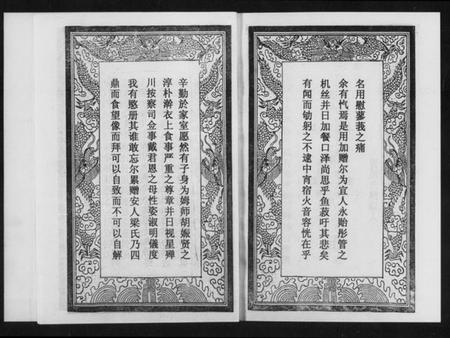 名用慰蓼莪之痛
余有忾焉是用加赠尔为宜人永贻彤管之
机丝并日加餐口泽尚思乎鱼菽吁其悲矣
有闻而劬躬之不逮中宵宿火音容恍在乎
辛勤於家室愿然有子身为姆师胡娠贤之
淳朴澣衣上食事严重之尊章并日视星殚
川按察司佥事戴君恩之母性姿淑明儀度
我有愍册其谁敢忘尔累赠安人梁氏乃四
鼎而食望像而拜可以自致而不可以自解